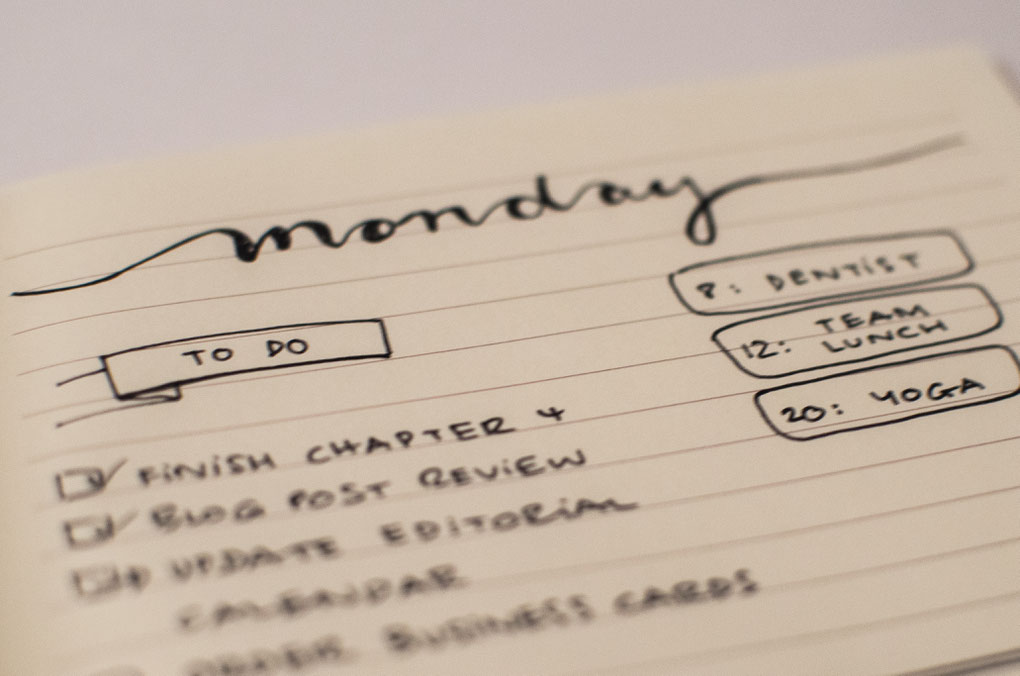 monday
8: DENTIST
12: TEAM
LUNCH
20: YOGA
TO DO
FINISH CHAPTER 4
BLOG POST REVIEW
UPDATE EDITORIAL
CALENDAR
ORDER BUSINESS CARDS